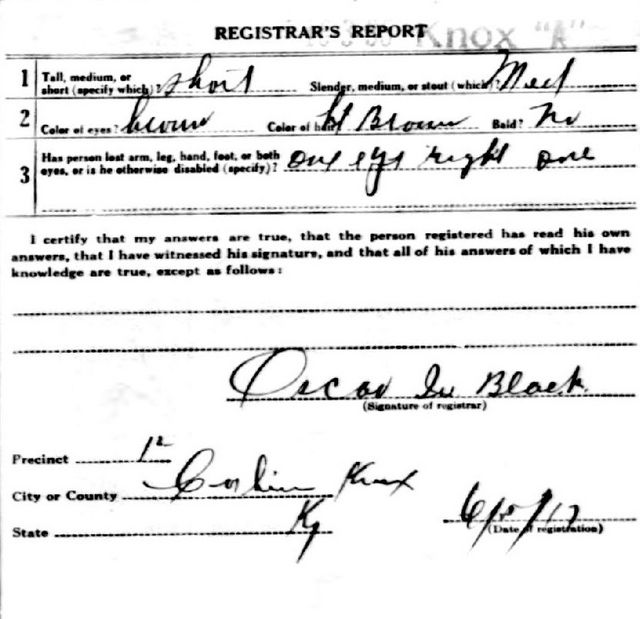 REGISTRAR'S REPORT
Knox "A"
1 Tall, medium, or short (specify which)? short Slender, medium, or stout (which)? Med
2 Color of eyes? brown Color of hair? Lt Brown Bald? No
3 Has person lost arm, leg, hand, foot, or both
eyes, or is he otherwise disabled (specify)? one eye right one
I certify that my answers are true, that the person registered has read his own
answers, that I have witnessed his signature, and that all of his answers of which I have
knowledge are true, except as follows:
Oscar Black
(Signature of registrar)
Precinct 12
City or County Corbin Knox
State Ky 6/5/17
(Date of registration)